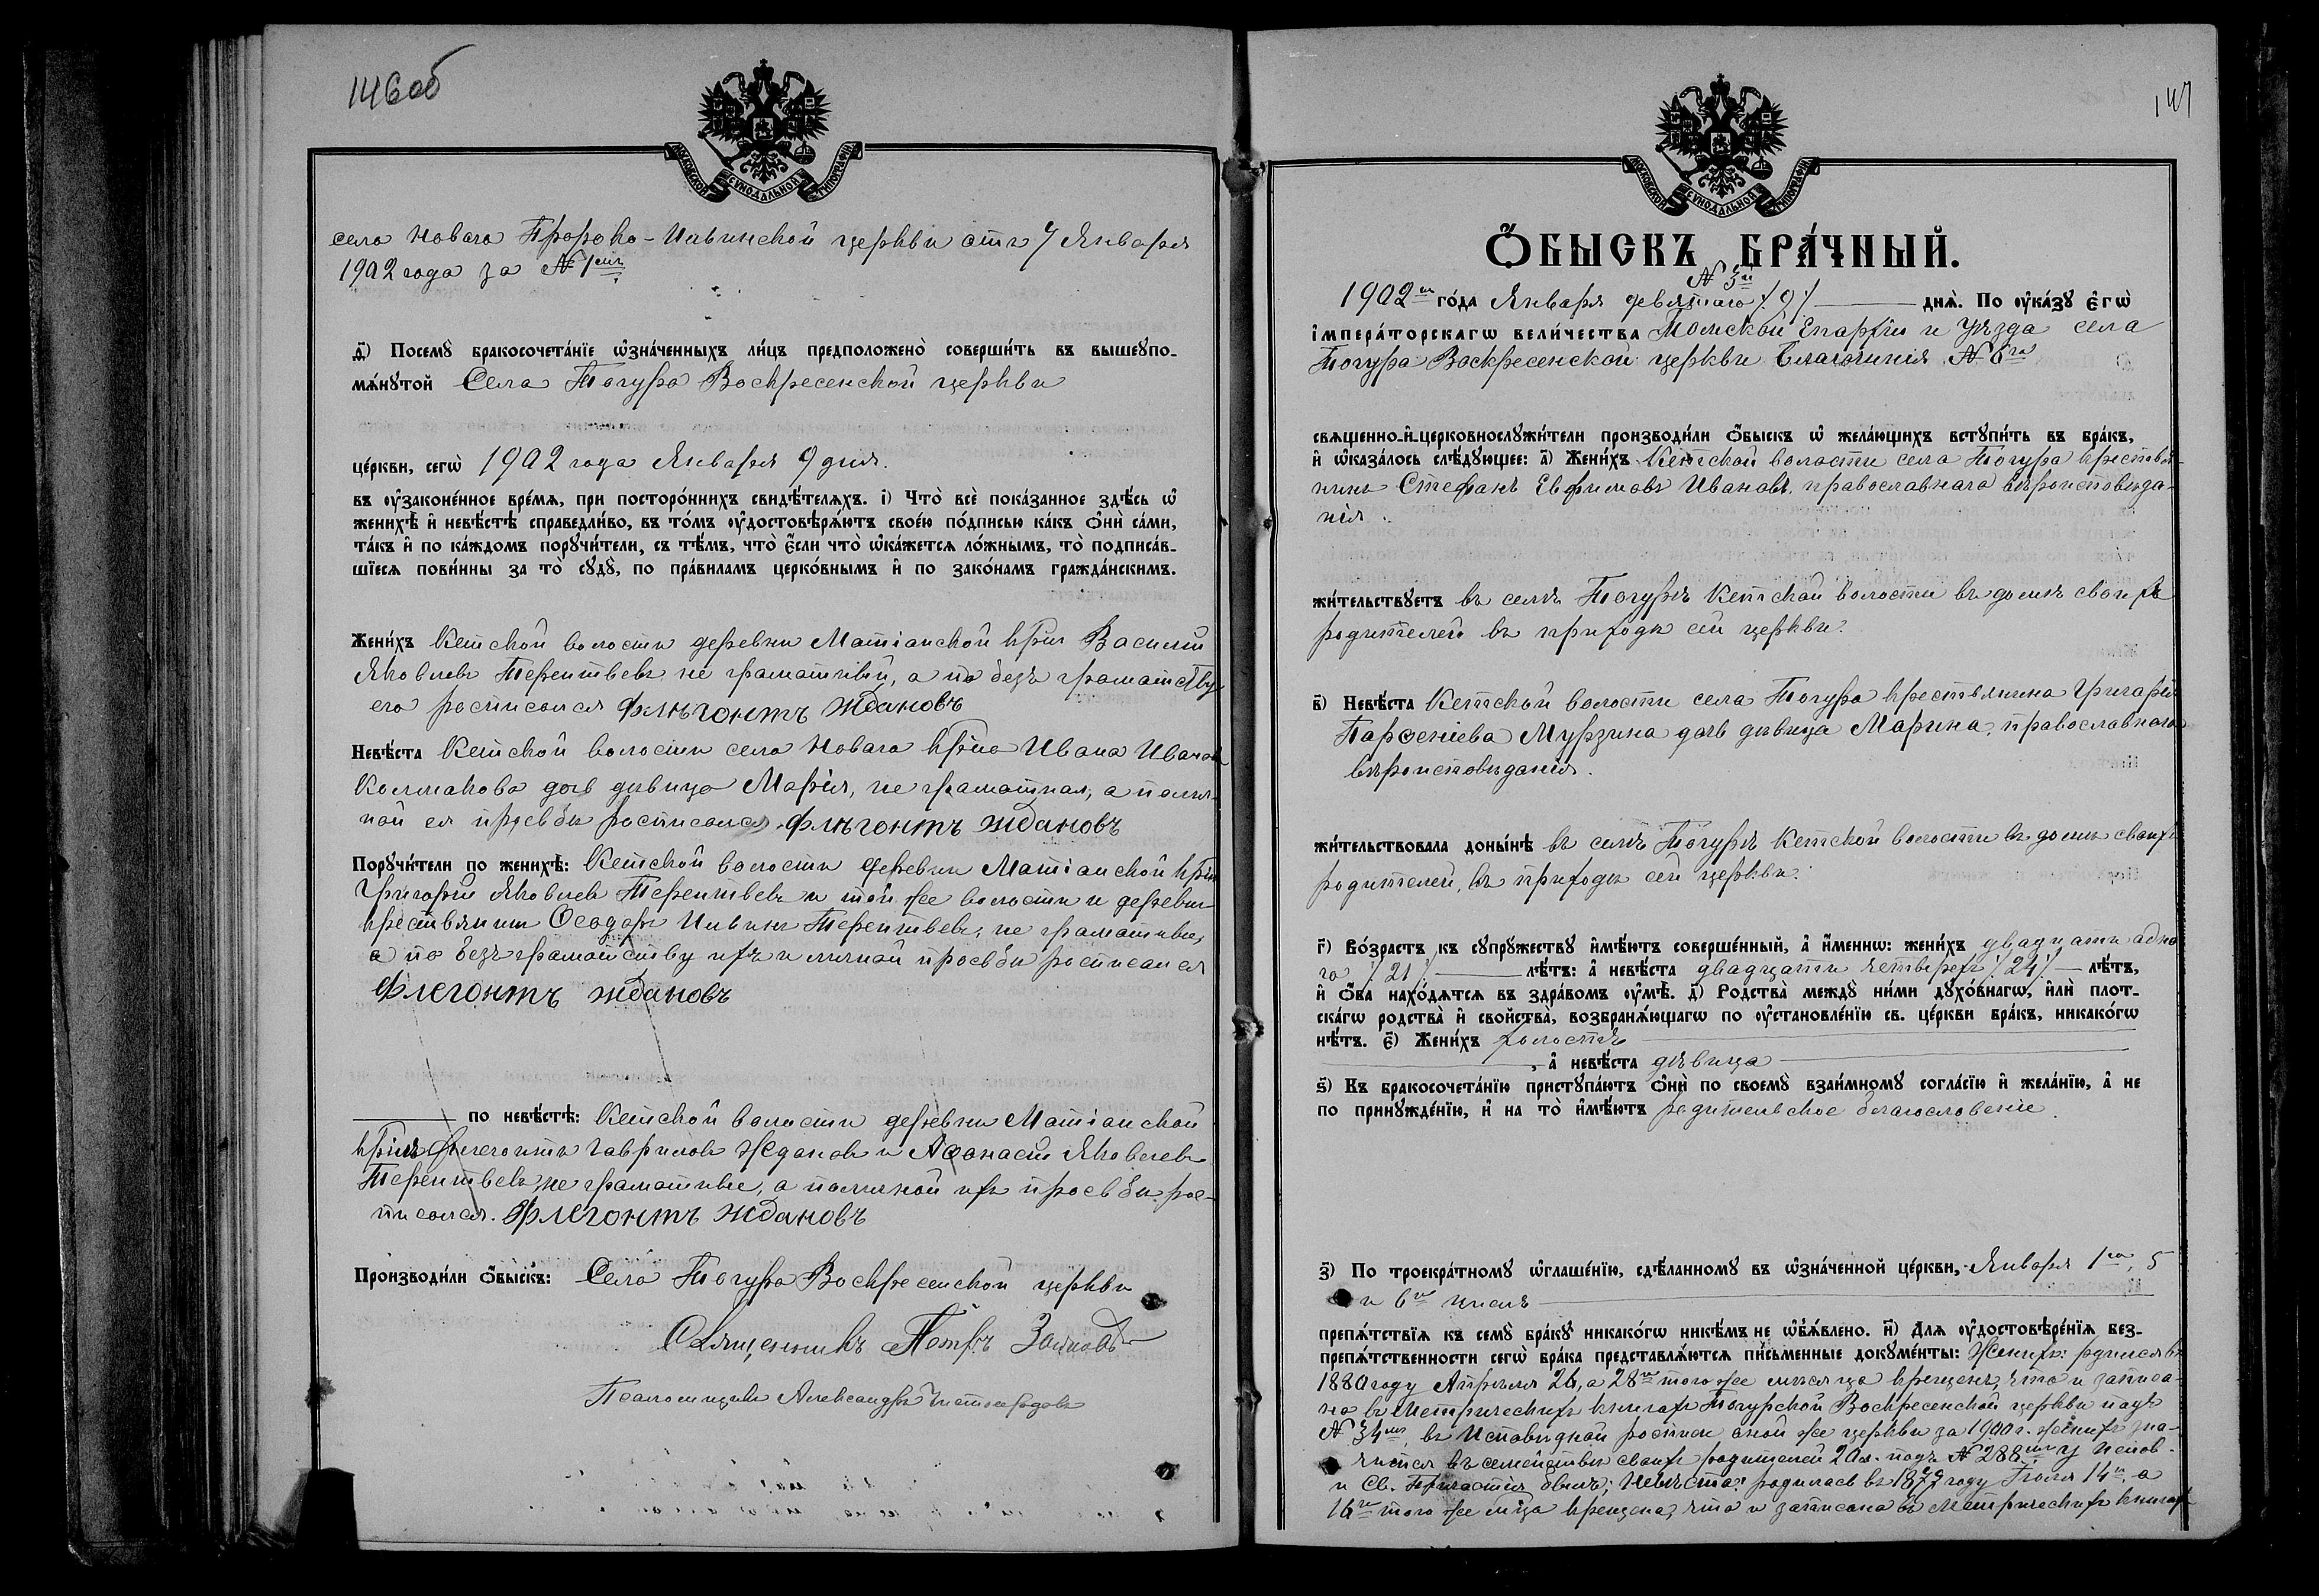 146об
МОСКОВСКОЙ СѴНОДАЛЬНОЙ ТИПОГРАФІИ
села Новаго Пророко-Ильинской церкви отъ 7 Января
1902 года за № 1мъ
д҃) Посемꙋ̀ бракосочета́нїе ѡ҆зна́ченныхъ ли́цъ предположено̀ соверши́ть въ вышеупо-
мѧ́нꙋтой Села Тогура Воскресенской церкви
це́ркви, сегѡ̀ 1902 года Января 9 дня.
въ ᲂу҆законе́нное вре́мѧ, при посторо́ннихъ свидѣ́телѧхъ. і҃) Что̀ всѐ пока́занное здѣ́сь ѡ҆
женихѣ̀ и҆ невѣ́стѣ справедли́во, въ то́мъ ᲂу҆достовѣрѧ́ютъ свое́ю по́дписью ка́къ ѻ҆нѝ са́ми,
та́къ и҆ по ка́ждомъ порꙋчи́тели, съ тѣ́мъ, что̀ є҆́сли что̀ ѡ҆ка́жетсѧ ло́жнымъ, то̀ подписа́в-
шїесѧ пови́нны за то̀ сꙋдꙋ̀, по пра́виламъ церко́внымъ и҆ по зако́намъ гражда́нскимъ.
Жени́хъ Кетской волости деревни Матіанской крнъ Василій
Яковлевъ Терентьевъ не граматный, а по безъ граматству
его росписался Флѣгонтъ Ждановъ
Невѣ́ста Кетской волости села Новаго крна Ивана Иванова
Колмакова дочь дѣвица Марія, не граматная, а по лич-
ной ея просьбѣ росписался Флѣгонтъ Ждановъ
Порꙋчи́тели по женихѣ̀: Кетской волости деревни Матіанской крнъ
Григорій Яковлев Терентьевъ и той же волости и деревни
крестьянинъ Ѳеодоръ Ильинъ Терентьевъ, не граматные,
а по безъ граматству ихъ и личной просьбѣ росписался
Флегонтъ Ждановъ
по невѣ́стѣ: Кетской волости деревни Матіанской
Флегонтъ Гаврилов Ждановъ и Аѳонасій Яковлевъ
Терентьевъ не граматные, а по личной ихъ просьбѣ рос-
писался. Флегонтъ Ждановъ
Производи́ли ѻ҆́быскъ: Села Тогура Воскресенской церкви
Священникъ Петръ
Псаломщикъ Александръ
147
МОСКОВСКОЙ СѴНОДАЛЬНОЙ ТИПОГРАФІИ
Ѻ҆́БЫСКЪ БРА́ЧНЫЙ.
№ 3й
1902го го́да Января девятаго /9/ днѧ̀. По ᲂу҆ка́зꙋ є҆гѡ̀
і҆мпера́торскагѡ вели́чества Томской Епархіи и Уѣзда села
Тогура Воскресенской церкви Благочинія № 6го
свѧщенно-и҆-церковнослꙋжи́тели производи́ли ѻ҆́быскъ ѡ҆ жела́ющихъ встꙋпи́ть въ бра́къ,
и҆ ѡ҆каза́лось слѣ́дꙋющее: а҃) Жени́хъ Кетской волости села Тогура крестья-
нинъ Стефанъ Евфимовъ Ивановъ, православнаго вѣроисповѣда-
нія.
жи́тельствꙋетъ въ селѣ Тогурѣ Кетской волости въ домѣ своихъ
родителей въ приходѣ сей церкви.
в҃) Невѣ́ста Кетской волости села Тогура крестьянина Григорія
Парѳеніева Мурзина дочь дѣвица Марина, православнаго
вѣроисповѣданія.
жи́тельствовала доны́нѣ въ селѣ Тогурѣ Кетской волости въ домѣ своихъ
родителей, въ приходѣ сей церкви.
г҃) Во́зрастъ къ сꙋпрꙋ́жествꙋ и҆мѣ́ютъ соверше́нный, а҆ и҆́меннѡ: жени́хъ двадцати одно-
го /21/ лѣ́тъ: а҆ невѣ́ста двадцати четырехъ /24/ лѣ́тъ,
и҆ ѻ҆́ба нахо́дѧтсѧ въ здра́вомъ ᲂу҆мѣ̀. д҃) Родства̀ междꙋ̀ ни́ми дꙋхо́внагѡ, и҆лѝ плот-
ска́гѡ родства̀ и҆ свойства̀, возбранѧ́ющагѡ по ᲂу҆становле́нїю св. це́ркви бра́къ, никако́гѡ
нѣ́тъ. є҃) Жени́хъ холостъ
, а҆ невѣ́ста дѣвица
ѕ҃) Къ бракосочета́нїю пристꙋпа́ютъ ѻ҆нѝ по своемꙋ̀ взаи́мномꙋ согла́сїю и҆ жела́нїю, а҆ не
по принꙋжде́нїю, и҆ на то̀ и҆мѣ́ютъ родительское благословеніе.
з҃) По троекра́тномꙋ ѡ҆глаше́нїю, сдѣ́ланномꙋ въ ѡ҆зна́ченной це́ркви, Января 1го, 5
и 6го числъ
препѧ́тствїѧ къ семꙋ̀ бра́кꙋ никако́гѡ никѣ́мъ не ѡ҆б̾ѧ́влено. и҃) Длѧ ᲂу҆достовѣре́нїѧ без-
препѧ́тственности сегѡ̀ бра́ка представлѧ́ютсѧ пи́сьменные докꙋме́нты: Женихъ: родился въ
1880 году Апрѣля 26, а 28го того же мѣсяца крещенъ, что и записа-
но въ Метрическихъ книгахъ Тогурской Воскресенской церкви подъ
№ 34мъ, въ Исповѣдной росписи оной же церкви за 1900 г. женихъ зна-
чится въ семействѣ своихъ родителей 20 л. подъ № 288мъ у испов.
и Св. Причастія былъ; Невѣста: родилась въ 1877 году Іюля 14го, а
16го того же мца крещена, что и записана въ Метрическихъ книгахъ